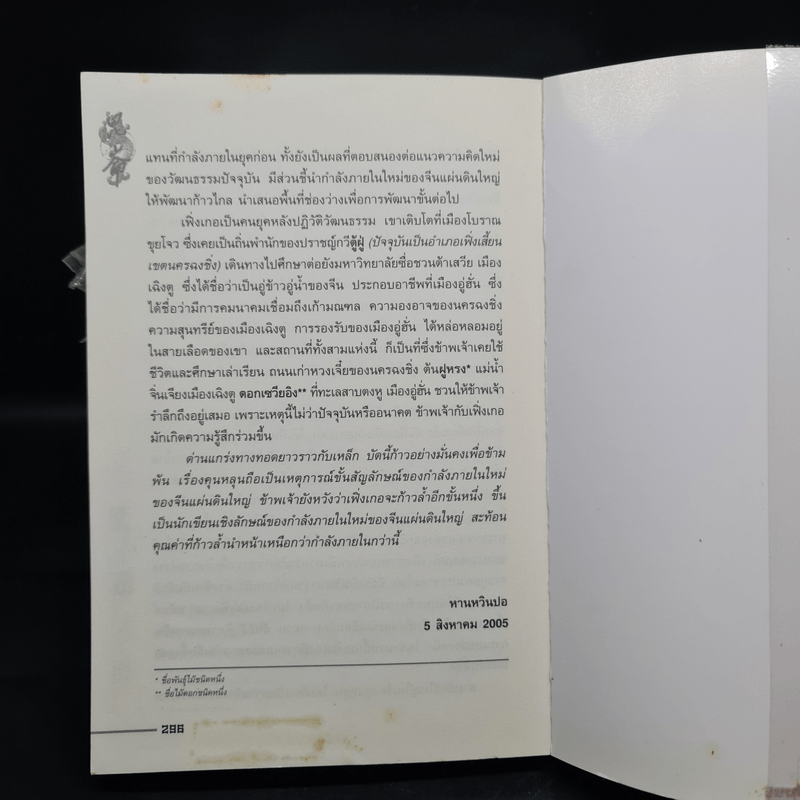 แทนที่กำลังภายในยุคก่อน ทั้งยังเป็นผลที่ตอบสนองต่อแนวความคิดใหม่
ของวัฒนธรรมปัจจุบัน มีส่วนชี้นำกำลังภายในใหม่ของจีนแผ่นดินใหญ่
ให้พัฒนาก้าวไกล นำเสนอพื้นที่ช่องว่างเพื่อการพัฒนาขั้นต่อไป
เฟิ่งเกอเป็นคนยุคหลังปฏิวัติวัฒนธรรม เขาเติบโตที่เมืองโบราณ
ขุยโจว ซึ่งเคยเป็นถิ่นพำนักของปราชญ์กวีตู้ฝู่ (ปัจจุบันเป็นอำเภอเฟิ่งเสี้ยน
เขตนครฉงชิ่ง) เดินทางไปศึกษาต่อยังมหาวิทยาลัยซื่อชวนต้าเสวีย เมือง
เฉิงตู ซึ่งได้ชื่อว่าเป็นอู่ข้าวอู่น้ำของจีน ประกอบอาชีพที่เมืองอู่ฮั่น ซึ่ง
ได้ชื่อว่ามีการคมนาคมเชื่อมถึงเก้ามณฑล ความองอาจของนครฉงชิ่ง
ความสุนทรีย์ของเมืองเฉิงตู การรองรับของเมืองอู่ฮั่น ได้หล่อหลอมอยู่
ในสายเลือดของเขา และสถานที่ทั้งสามแห่งนี้ ก็เป็นที่ซึ่งข้าพเจ้าเคยใช้
ชีวิตและศึกษาเล่าเรียน ถนนเก่าหวงเจี่ยของนครฉงชิ่ง ต้นฝูหรง* แม่น้ำ
จิ่นเจียงเมืองเฉิงตู ดอกเซวียอิง** ที่ทะเลสาบตงหู เมืองอู่ฮั่น ชวนให้ข้าพเจ้า
รำลึกถึงอยู่เสมอ เพราะเหตุนี้ไม่ว่าปัจจุบันหรืออนาคต ข้าพเจ้ากับเฟิ่งเกอ
มักเกิดความรู้สึกร่วมขึ้น
ด่านแกร่งทางทอดยาวราวกับเหล็ก บัดนี้ก้าวอย่างมั่นคงเพื่อข้าม
พ้น เรื่องคุนหลุนถือเป็นเหตุการณ์ขั้นสัญลักษณ์ของกำลังภายในใหม่
ของจีนแผ่นดินใหญ่ ข้าพเจ้ายังหวังว่าเฟิ่งเกอจะก้าวล้ำอีกขั้นหนึ่ง ขึ้น
เป็นนักเขียนเชิงลักษณ์ของกำลังภายในใหม่ของจีนแผ่นดินใหญ่ สะท้อน
คุณค่าที่ก้าวล้ำนำหน้าเหนือกว่ากำลังภายในกว่านี้
หานหวินปอ
5 สิงหาคม 2005
* ชื่อพันธุ์ไม้ชนิดหนึ่ง
** ชื่อไม้ดอกชนิดหนึ่ง
296